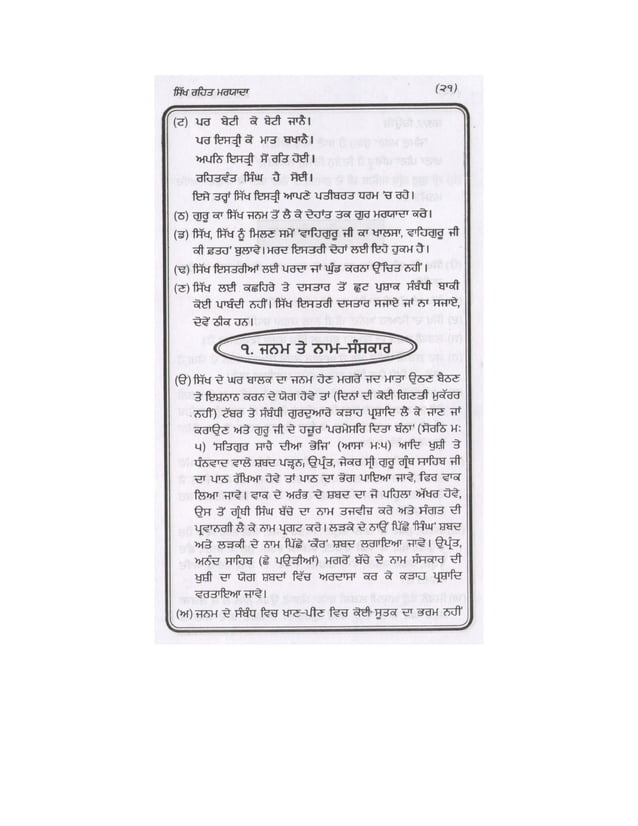 ਸਿੱਖ ਰਹਿਤ ਮਰਯਾਦਾ (੨੧)
(ਟ) ਪਰ ਬੇਟੀ ਕੋ ਬੇਟੀ ਜਾਨੈ।
ਪਰ ਇਸਤ੍ਰੀ ਕੋ ਮਾਤ ਬਖਾਨੈ।
ਅਪਨਿ ਇਸਤ੍ਰੀ ਸੋਂ ਰਤਿ ਹੋਈ।
ਰਹਿਤਵੰਤ ਸਿੰਘ ਹੈ ਸੋਈ।
ਇਸੇ ਤਰ੍ਹਾਂ ਸਿੱਖ ਇਸਤ੍ਰੀ ਆਪਣੇ ਪਤੀਬਰਤ ਧਰਮ 'ਚ ਰਹੇ।
(ਠ) ਗੁਰੂ ਕਾ ਸਿੱਖ ਜਨਮ ਤੋਂ ਲੈ ਕੇ ਦੇਹਾਂਤ ਤਕ ਗੁਰ ਮਰਯਾਦਾ ਕਰੇ।
(ਡ) ਸਿੱਖ, ਸਿੱਖ ਨੂੰ ਮਿਲਣ ਸਮੇਂ 'ਵਾਹਿਗੁਰੂ ਜੀ ਕਾ ਖਾਲਸਾ, ਵਾਹਿਗੁਰੂ ਜੀ
ਕੀ ਫ਼ਤਹ' ਬੁਲਾਵੇ। ਮਰਦ ਇਸਤਰੀ ਦੋਹਾਂ ਲਈ ਇਹੋ ਹੁਕਮ ਹੈ।
(ਢ) ਸਿੱਖ ਇਸਤਰੀਆਂ ਲਈ ਪਰਦਾ ਜਾਂ ਘੁੰਡ ਕਰਨਾ ਉੱਚਿਤ ਨਹੀਂ।
(ਣ) ਸਿੱਖ ਲਈ ਕਛਹਿਰੇ ਤੇ ਦਸਤਾਰ ਤੋਂ ਛੁਟ ਪੁਸ਼ਾਕ ਸੰਬੰਧੀ ਬਾਕੀ
ਕੋਈ ਪਾਬੰਦੀ ਨਹੀਂ। ਸਿੱਖ ਇਸਤਰੀ ਦਸਤਾਰ ਸਜਾਏ ਜਾਂ ਨਾ ਸਜਾਏ,
ਦੋਵੇਂ ਠੀਕ ਹਨ।
੧. ਜਨਮ ਤੇ ਨਾਮ-ਸੰਸਕਾਰ
(ੳ) ਸਿੱਖ ਦੇ ਘਰ ਬਾਲਕ ਦਾ ਜਨਮ ਹੋਣ ਮਗਰੋਂ ਜਦ ਮਾਤਾ ਉਠਣ ਬੈਠਣ
ਤੇ ਇਸ਼ਨਾਨ ਕਰਨ ਦੇ ਯੋਗ ਹੋਵੇ ਤਾਂ (ਦਿਨਾਂ ਦੀ ਕੋਈ ਗਿਣਤੀ ਮੁਕੱਰਰ
ਨਹੀਂ) ਟੱਬਰ ਤੇ ਸੰਬੰਧੀ ਗੁਰਦੁਆਰੇ ਕੜਾਹ ਪ੍ਰਸ਼ਾਦਿ ਲੈ ਕੇ ਜਾਣ ਜਾਂ
ਕਰਾਉਣ ਅਤੇ ਗੁਰੂ ਜੀ ਦੇ ਹਜ਼ੂਰ 'ਪਰਮੇਸਰਿ ਦਿਤਾ ਬੰਨਾ' (ਸੋਰਠਿ ਮ:
੫) 'ਸਤਿਗੁਰ ਸਾਚੈ ਦੀਆ ਭੇਜਿ' (ਆਸਾ ਮ:੫) ਆਦਿ ਖੁਸ਼ੀ ਤੇ
ਧੰਨਵਾਦ ਵਾਲੇ ਸ਼ਬਦ ਪੜ੍ਹਨ, ਉਪ੍ਰੰਤ, ਜੇਕਰ ਸ੍ਰੀ ਗੁਰੂ ਗ੍ਰੰਥ ਸਾਹਿਬ ਜੀ
ਦਾ ਪਾਠ ਰੱਖਿਆ ਹੋਵੇ ਤਾਂ ਪਾਠ ਦਾ ਭੋਗ ਪਾਇਆ ਜਾਵੇ, ਫਿਰ ਵਾਕ
ਲਿਆ ਜਾਵੇ। ਵਾਕ ਦੇ ਅਰੰਭ ਦੇ ਸ਼ਬਦ ਦਾ ਜੋ ਪਹਿਲਾ ਅੱਖਰ ਹੋਵੇ,
ਉਸ ਤੋਂ ਗ੍ਰੰਥੀ ਸਿੰਘ ਬੱਚੇ ਦਾ ਨਾਮ ਤਜਵੀਜ਼ ਕਰੇ ਅਤੇ ਸੰਗਤ ਦੀ
ਪ੍ਰਵਾਨਗੀ ਲੈ ਕੇ ਨਾਮ ਪ੍ਰਗਟ ਕਰੇ। ਲੜਕੇ ਦੇ ਨਾਉਂ ਪਿੱਛੇ 'ਸਿੰਘ' ਸ਼ਬਦ
ਅਤੇ ਲੜਕੀ ਦੇ ਨਾਮ ਪਿੱਛੇ 'ਕੌਰ' ਸ਼ਬਦ ਲਗਾਇਆ ਜਾਵੇ। ਉਪ੍ਰੰਤ,
ਅਨੰਦ ਸਾਹਿਬ (ਛੇ ਪਉੜੀਆਂ) ਮਗਰੋਂ ਬੱਚੇ ਦੇ ਨਾਮ ਸੰਸਕਾਰ ਦੀ
ਖੁਸ਼ੀ ਦਾ ਯੋਗ ਸ਼ਬਦਾਂ ਵਿੱਚ ਅਰਦਾਸਾ ਕਰ ਕੇ ਕੜਾਹ ਪ੍ਰਸ਼ਾਦਿ
ਵਰਤਾਇਆ ਜਾਵੇ।
(ਅ) ਜਨਮ ਦੇ ਸੰਬੰਧ ਵਿਚ ਖਾਣ-ਪੀਣ ਵਿਚ ਕੋਈ ਸੂਤਕ ਦਾ ਭਰਮ ਨਹੀਂ